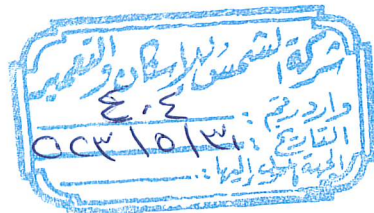 شركة الشمس للإسكان والتعمير
وارد رقم : ٤٠٤
التاريخ : ٣١/٥/
الجهة المحول إليها :